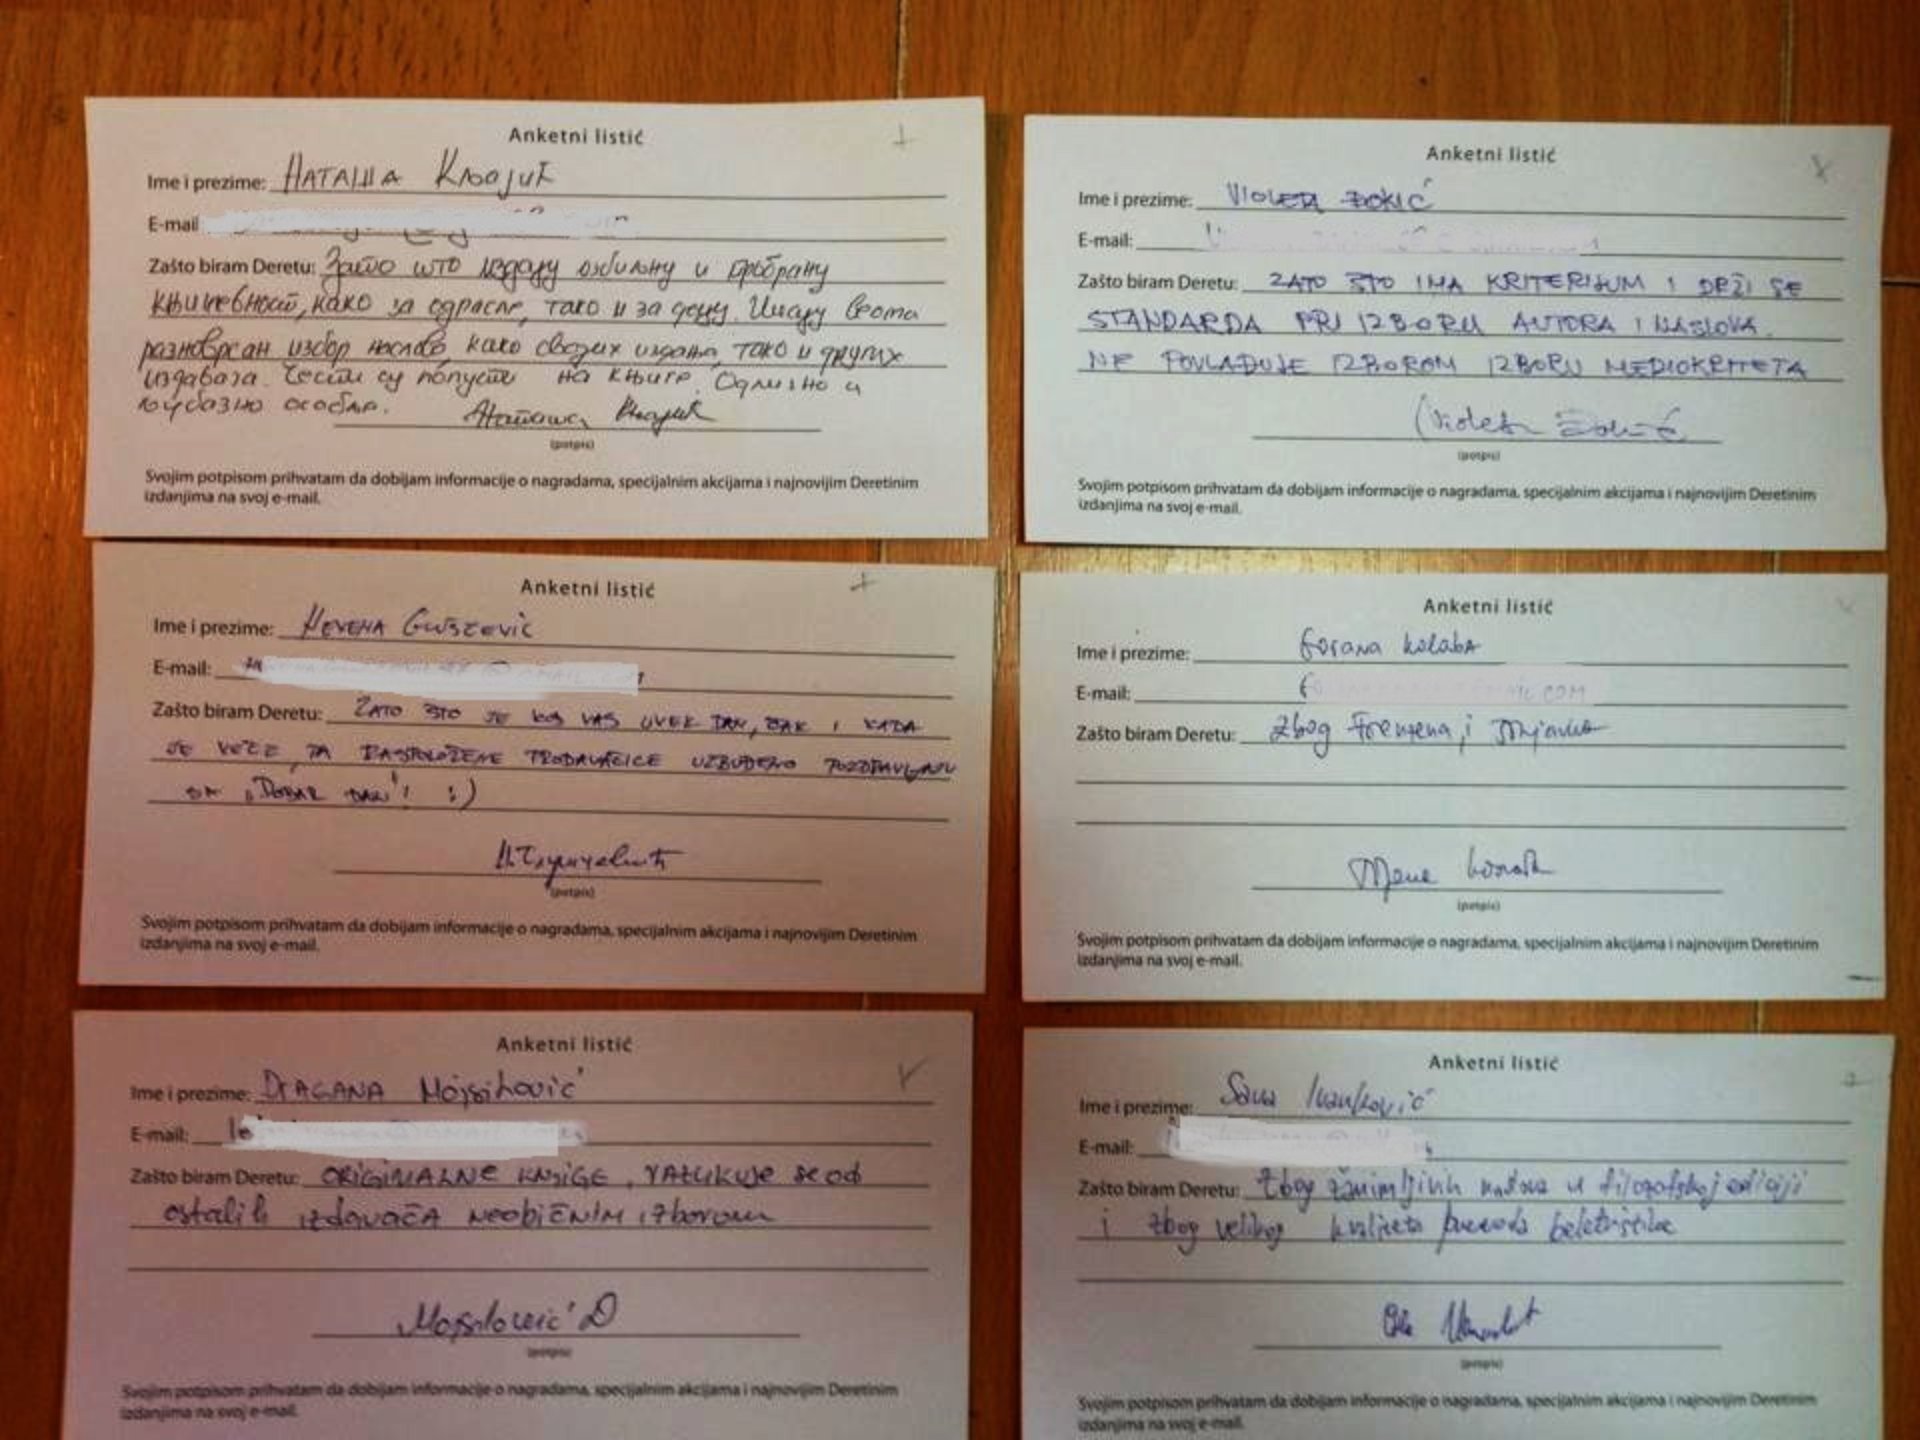 Anketni listić
Ime i prezime: НАТАША
E-mail
Zašto biram Deretu: Зато што издају озбиљну и пробрану
књижевност, како за одрасле, тако и за децу. Имају веома
разноврсан избор наслова, како својих издања, тако и других
издавача. Чести су попусти на књиге. Одлично и
љубазно особље.
(potpis)
Svojim potpisom prihvatam da dobijam informacije o nagradama, specijalnim akcijama i najnovijim Deretinim
izdanjima na svoj e-mail.
Anketni listić
Ime i prezime: VIOLETA ĐOKIĆ
E-mail:
Zašto biram Deretu: ZATO ŠTO IMA KRITERIJUM I DRŽI SE
STANDARDA PRI IZBORU AUTORA I NASLOVA.
NE POVLAĐUJE IZBOROM IZBORU MEDIOKRITETA
(potpis)
Svojim potpisom prihvatam da dobijam informacije o nagradama, specijalnim akcijama i najnovijim Deretinim
izdanjima na svoj e-mail.
Anketni listić
Ime i prezime: НЕVЕНА
E-mail:
Zašto biram Deretu: ZATO ŠTO JE KOD VAS UVEK DAN, ČAK I KADA
JE VEČE, PA RASPOLOŽENE PRODAVAČICE UZBUĐENO POZDRAVLJAJU
SA „DOBAR DAN"! :)
(potpis)
Svojim potpisom prihvatam da dobijam informacije o nagradama, specijalnim akcijama i najnovijim Deretinim
izdanjima na svoj e-mail.
Anketni listić
Ime i prezime: Gorana Kolaba
E-mail: COM
Zašto biram Deretu: Zbog i
(potpis)
Svojim potpisom prihvatam da dobijam informacije o nagradama, specijalnim akcijama i najnovijim Deretinim
izdanjima na svoj e-mail.
Anketni listić
Ime i prezime: DRAGANA Mojsilović
E-mail:
Zašto biram Deretu: ORIGINALNE KNJIGE, RAZLIKUJE SE OD
ostalih izdavača neobičnim izborom
Mojsilović D
(potpis)
Svojim potpisom prihvatam da dobijam informacije o nagradama, specijalnim akcijama i najnovijim Deretinim
izdanjima na svoj e-mail.
Anketni listić
Ime i prezime: Sava Ivanković
E-mail:
Zašto biram Deretu: Zbog zanimljivih naslova u filozofskoj ediciji
i zbog velikog kvaliteta prevoda beletristike
(potpis)
Svojim potpisom prihvatam da dobijam informacije o nagradama, specijalnim akcijama i najnovijim Deretinim
izdanjima na svoj e-mail.